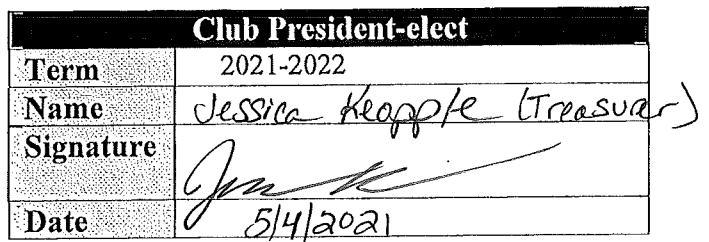 Club President-elect
Term 2021-2022
Name Jessica Keapple (Treasurer)
Signature
Date 5/4/2021